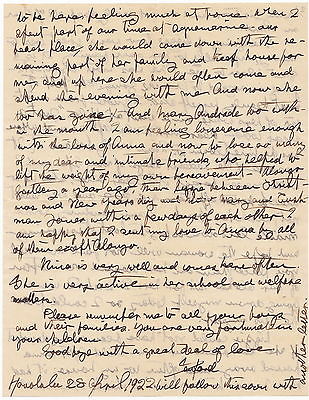 to be here feeling much at home when I
spent part of our time at Aquamarine our
beach place, she would come down with the re-
maining part of her family and keep house for
me, and up here she would often come and
spend the evening with me. And now she
too has gone, and Mary Andrade too with-
in the month. I am feeling lonesome enough
with the loss of Anna and now to lose so many
of my dear and intimate friends who helped to
lift the weight of my own bereavement - Alonzo
Gartley a year ago, then between Christ-
mas and New Years day and
man Jones within a few days of each other. I
am happy that I sent my love to Anna by all
of them except Alonzo.
Nina is very well and comes here often.
She is very active in her school and welfare
matters.
Please remember me to all your boys
and their families. You are very fortunate in
your children.
Goodbye with a great deal of love.
Sanford
Honolulu 28 April, 1922 Will follow this soon with
another letter.